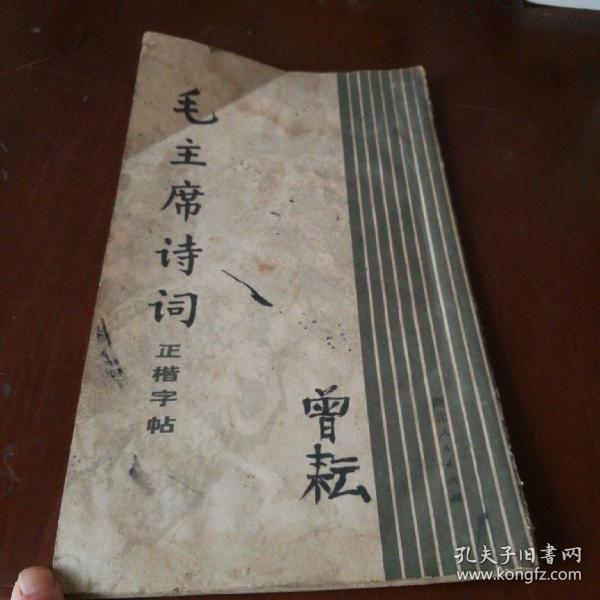 毛主席诗词
正楷字帖
曾耘
湖北人民出版社
孔夫子旧书网
www.kongfz.com